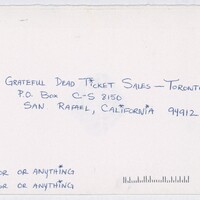 GRATEFUL DEAD TICKET SALES — TORONTO
P.O. BOX C-S 8150
SAN RAFAEL, CALIFORNIA 94912
OR OR ANYTHING
OR OR ANYTHING